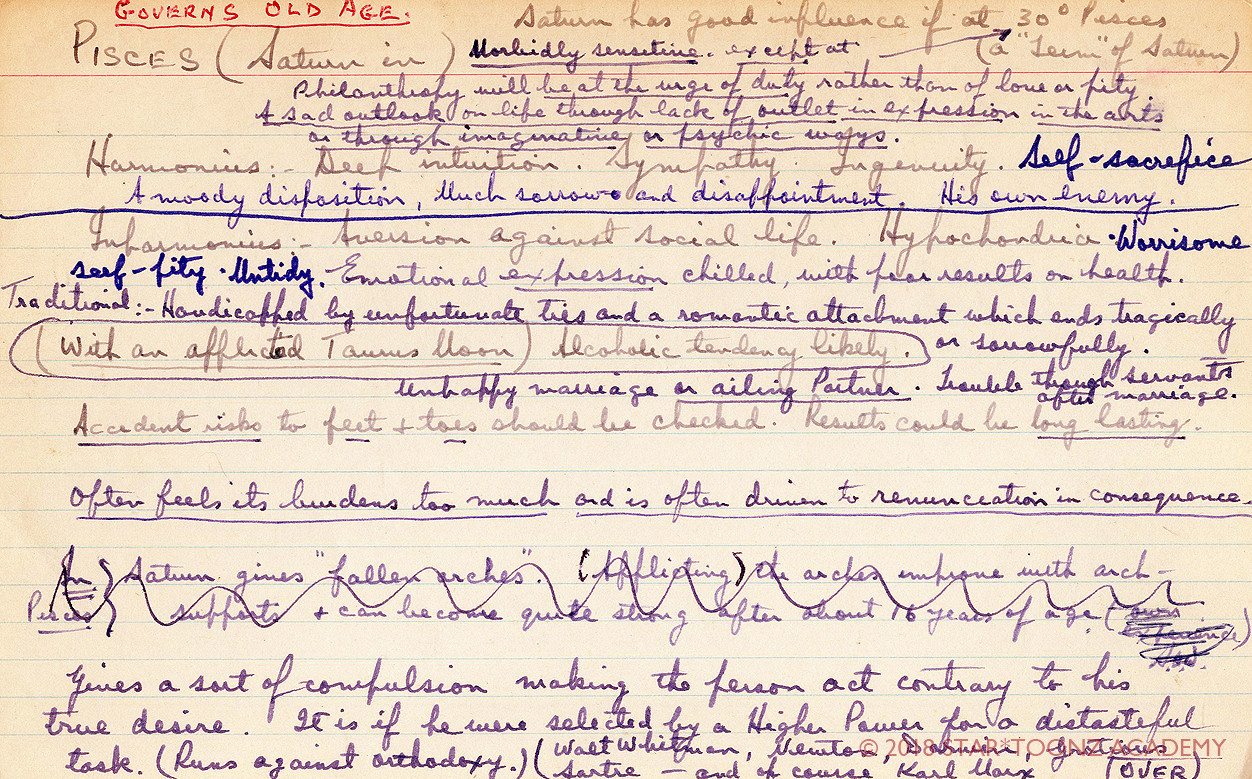 GOVERNS OLD AGE.
Saturn has good influence if at 30° Pisces
PISCES (Saturn in) Morbidly sensitive. except at (a "Term" of Saturn)
Philanthropy will be at the urge of duty rather than of love or pity.
A sad outlook on life through lack of outlet in expression in the arts
or through imaginative or psychic ways.
Harmonius:- Deep intuition. Sympathy. Ingenuity. Self-sacrefice
A moody disposition, Much sorrow and disappointment. His own enemy.
Inharmonius:- Aversion against social life. Hypochondria. Worrisome
self-pity. Untidy. Emotional expression chilled, with poor results on health.
Traditional:- Handicapped by unfortunate ties and a romantic attachment which ends tragically
(With an afflicted Taurus Moon) Alcoholic tendency likely. or sorrowfully.
Unhappy marriage or ailing Partner. Trouble through servants
after marriage.
Accident risks to feet + toes should be checked. Results could be long lasting.
Often feels its burdens too much and is often driven to renunciation in consequence.
In Pisces) Saturn gives "fallen arches". (Afflicting) the arches improve with arch-
supports + can become quite strong after about 16 years of age (own
experience)
Gives a sort of compulsion making the person act contrary to his
true desire. It is if he were selected by a Higher Power for a distasteful
task. (Runs against orthodoxy.) (Walt Whitman, Newton,
Sartre - and of course Karl Marx (OVER)
© 2018 STAR*TOONZ ACADEMY